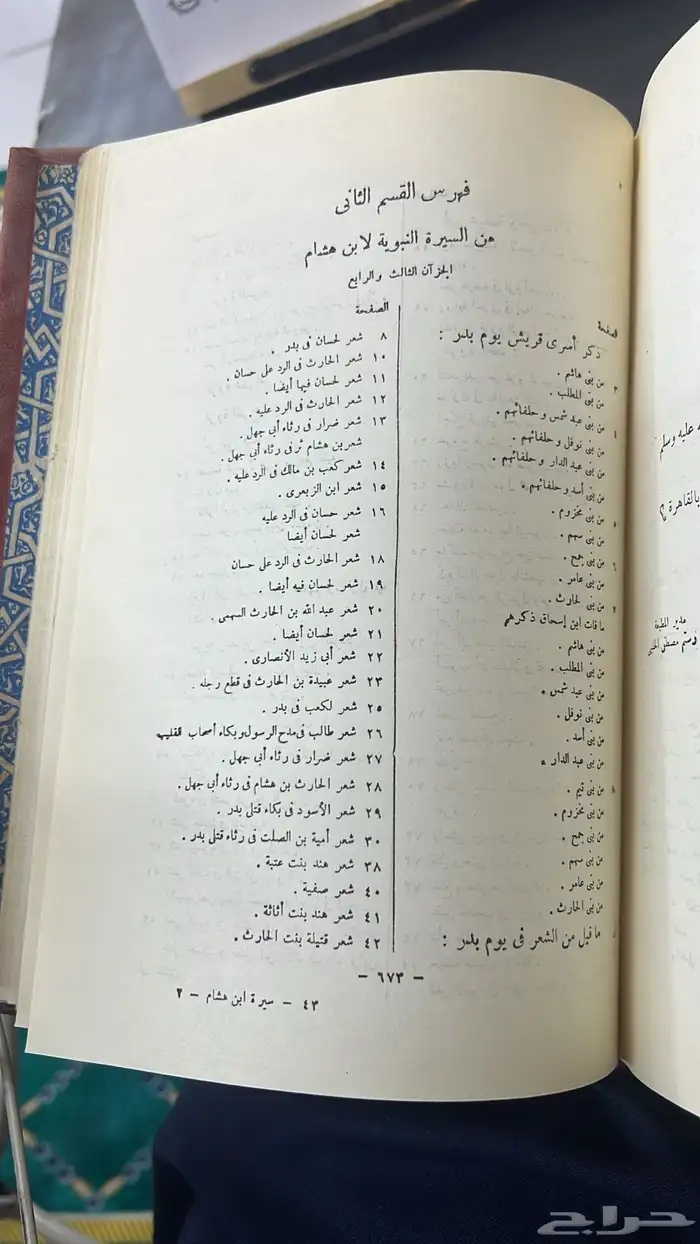 فهرس القسم الثانى
من السيرة النبوية لابن هشام
الجزآن الثالث والرابع
الصفحة
ذكر أسرى قريش يوم بدر :
من بنى هاشم .
من بنى المطلب .
من بنى عبد شمس وحلفائهم .
من بنى نوفل وحلفائهم .
من بنى عبد الدار وحلفائهم .
من بنى أسد وحلفائهم .
من بنى مخزوم .
من بنى سهم .
من بنى جمح .
من بنى عامر .
من بنى الحارث .
ما فات ابن إسحاق ذكرهم
من بنى هاشم .
من بنى المطلب .
من بنى عبد شمس .
من بنى نوفل .
من بنى أسد .
من بنى عبد الدار .
من بنى تيم .
من بنى مخزوم .
من بنى جمح .
من بنى سهم .
من بنى عامر .
من بنى الحارث .
ما قيل من الشعر فى يوم بدر :
الصفحة
٨ شعر لحسان فى بدر .
١٠ شعر الحارث فى الرد على حسان .
١١ شعر لحسان فيها أيضا .
١٢ شعر الحارث فى الرد عليه .
١٣ شعر ضرار فى رثاء أبى جهل .
شعر بن هشام فى رثاء أبى جهل .
١٤ شعر كعب بن مالك فى الرد عليه .
١٥ شعر ابن الزبعرى .
١٦ شعر حسان فى الرد عليه
شعر لحسان أيضا
١٨ شعر الحارث فى الرد على حسان
١٩ شعر لحسان فيه أيضا .
٢٠ شعر عبد الله بن الحارث السهمى .
٢١ شعر لحسان أيضا .
٢٢ شعر أبى زيد الأنصارى .
٢٣ شعر عبيدة بن الحارث فى قطع رجله .
٢٥ شعر لكعب فى بدر .
٢٦ شعر طالب فى مدح الرسول وبكاء أصحاب القليب
٢٧ شعر ضرار فى رثاء أبى جهل .
٢٨ شعر الحارث بن هشام فى رثاء أبى جهل .
٢٩ شعر الأسود فى بكاء قتلى بدر .
٣٠ شعر أمية بن الصلت فى رثاء قتلى بدر .
٣٨ شعر هند بنت عتبة .
٤٠ شعر صفية .
٤١ شعر هند بنت أثاثة .
٤٢ شعر قتيلة بنت الحارث .
— ٦٧٣ —
٤٣ – سيرة ابن هشام – ٢
عليه وسلم
بالقاهرة
مدير المطبعة
رستم مصطفى الحلبى
حراج